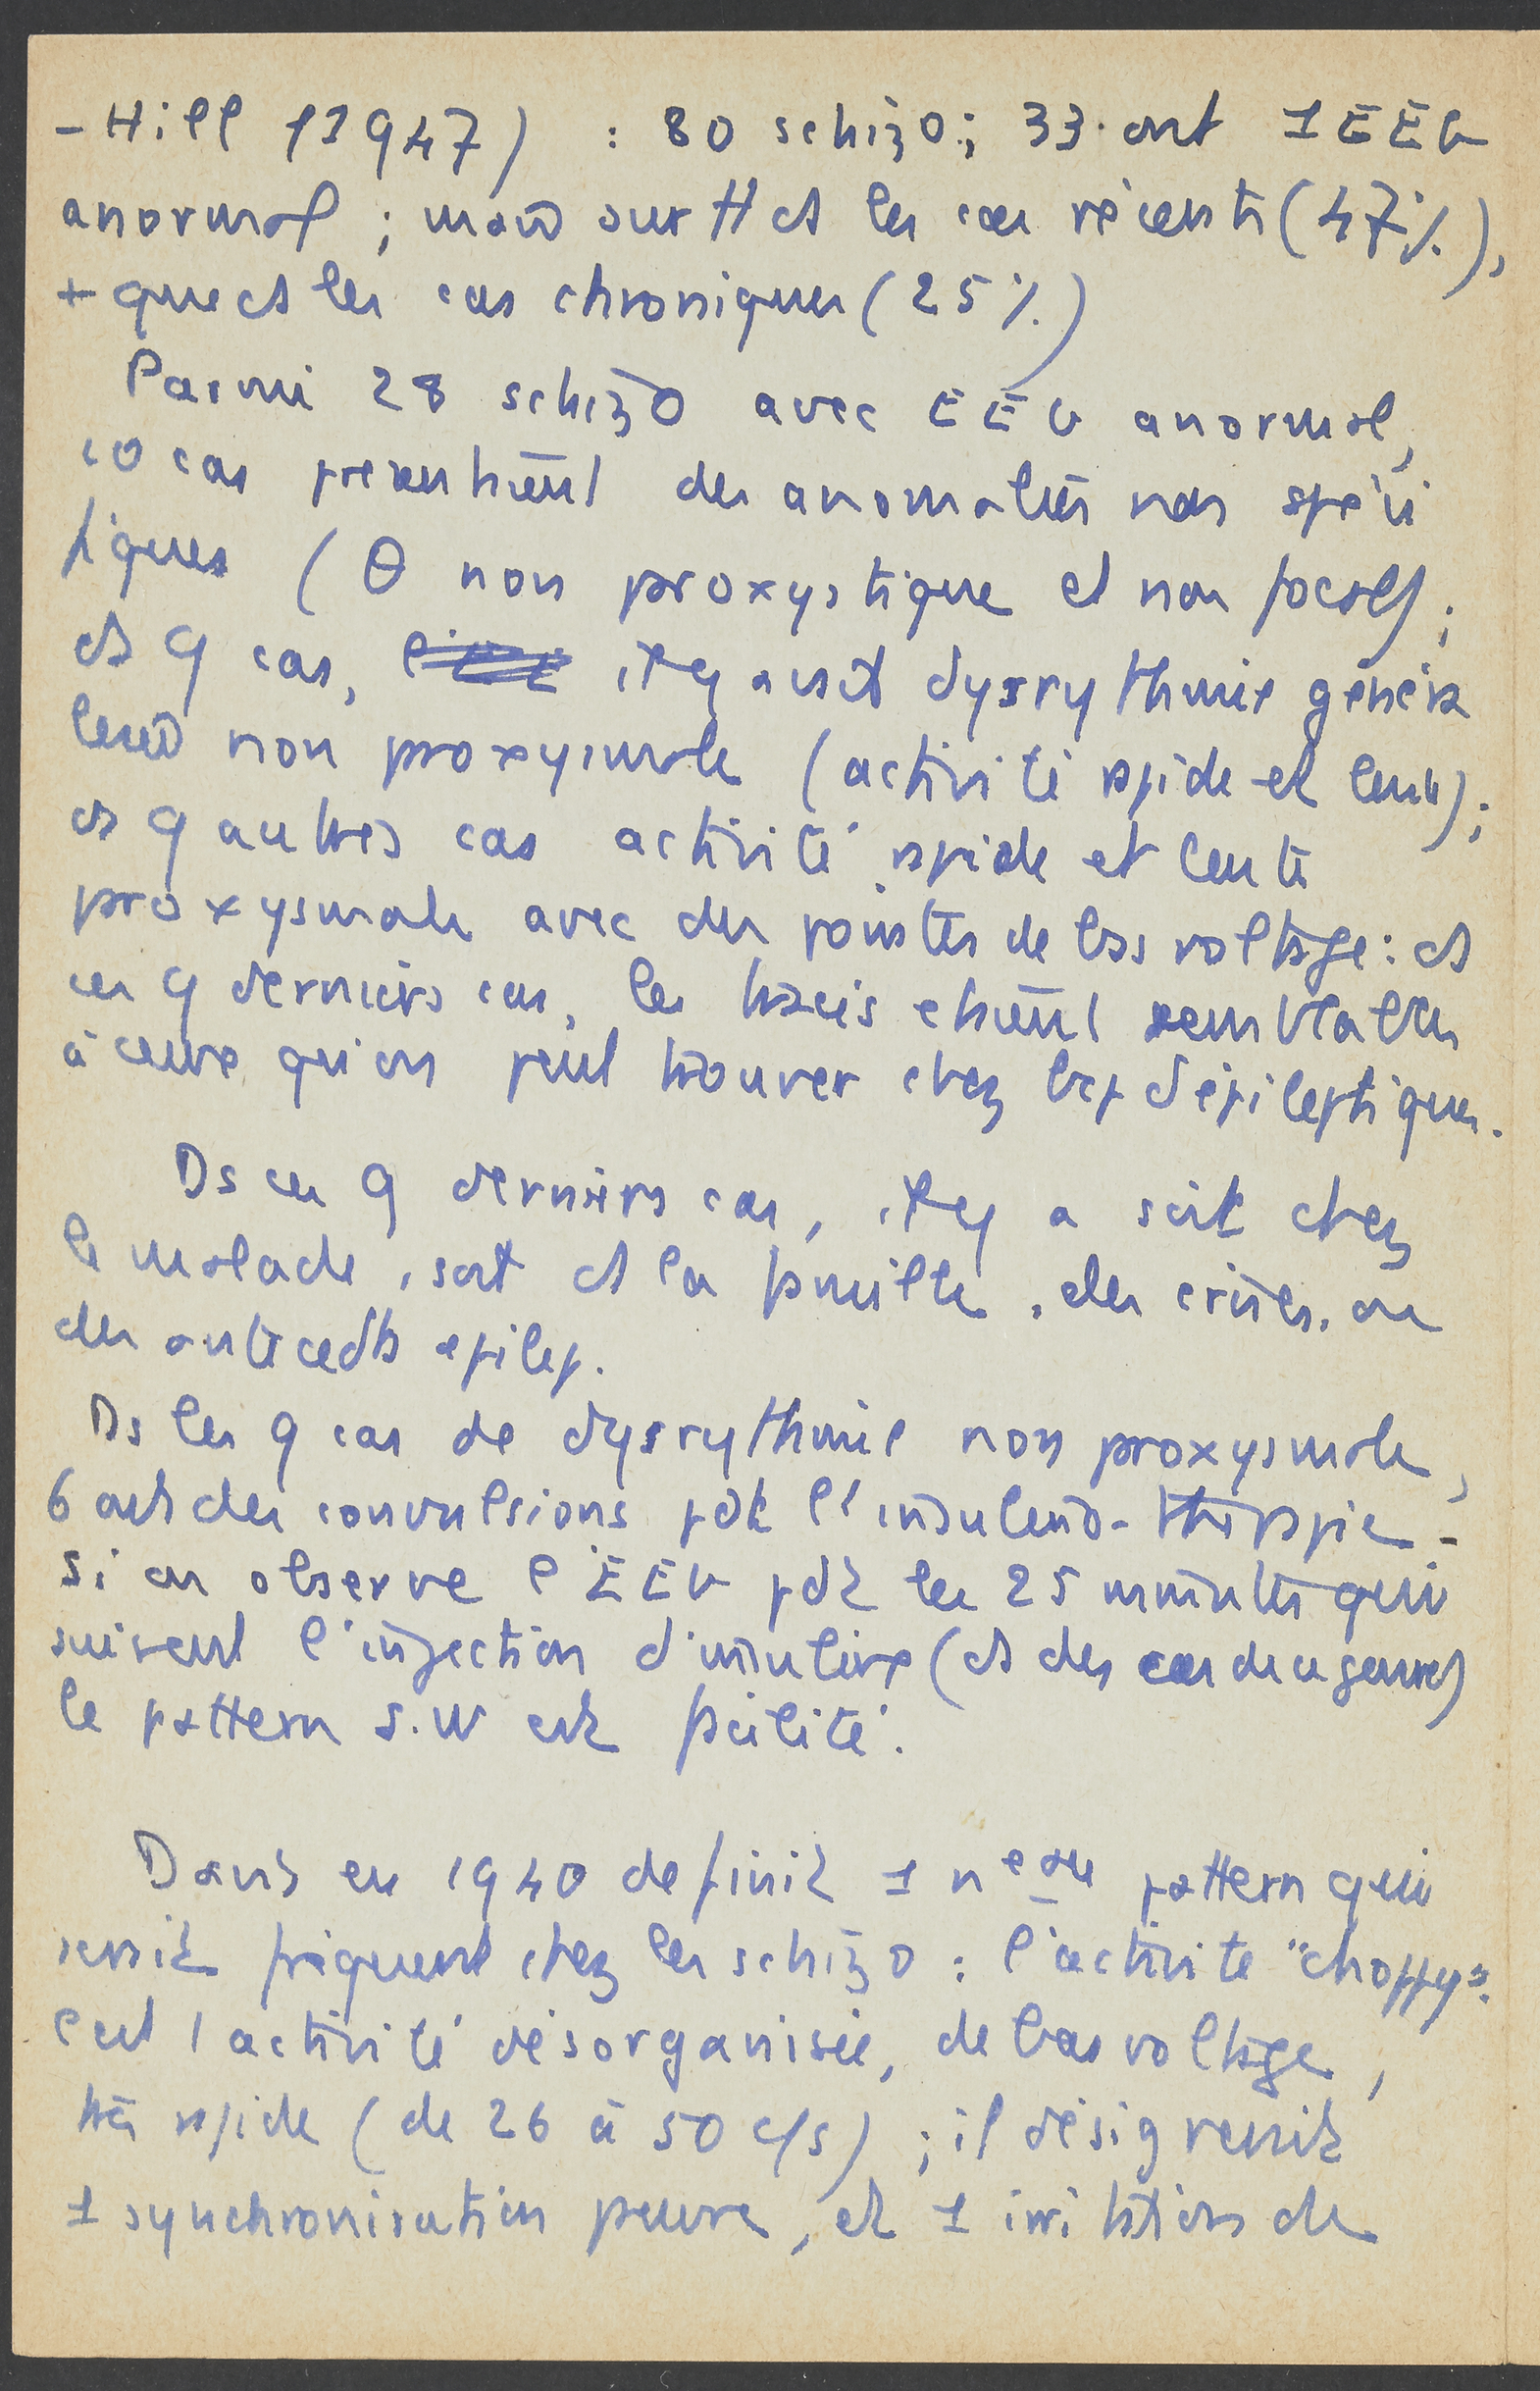 - Hill (1947) : 80 schizo ; 33 ont 1 EEG
anormal ; mais surtt ds les cas récents (47%),
+ que ds les cas chroniques (25%)
Parmi 28 schizo avec EEG anormal,
10 cas présentaient des anomalies non spéci
fiques (θ non proxystique et non focal) ;
ds 9 cas, il y avait dysrythmie généra
lisée non proxysmale (activité rapide et lente) ;
ds 9 autres cas activité rapide et lente
proxysmale avec des pointes de bas voltage : ds
ces 9 derniers cas, les tracés étaient semblables
à ceux qu'on peut trouver chez bcp d'épileptiques.
Ds ces 9 derniers cas, il y a soit chez
le malade, soit ds la famille, des crises, ou
des antécédts épilep.
Ds les 9 cas de dysrythmie non proxysmale,
6 ont des convulsions pdt l'insulino-thérapie -
Si on observe l'EEG pdt les 25 minutes qui
suivent l'injection d'insuline (ds des cas de ce genre)
le pattern S.W est facilité.
Davis en 1940 définit 1 neau pattern qui
serait fréquent chez les schizo : l'activité "choppy" :
c'est 1 activité désorganisée, de bas voltage,
très rapide (de 26 à 50 c/s) ; il désignerait
1 synchronisation pauvre, et 1 irritation de